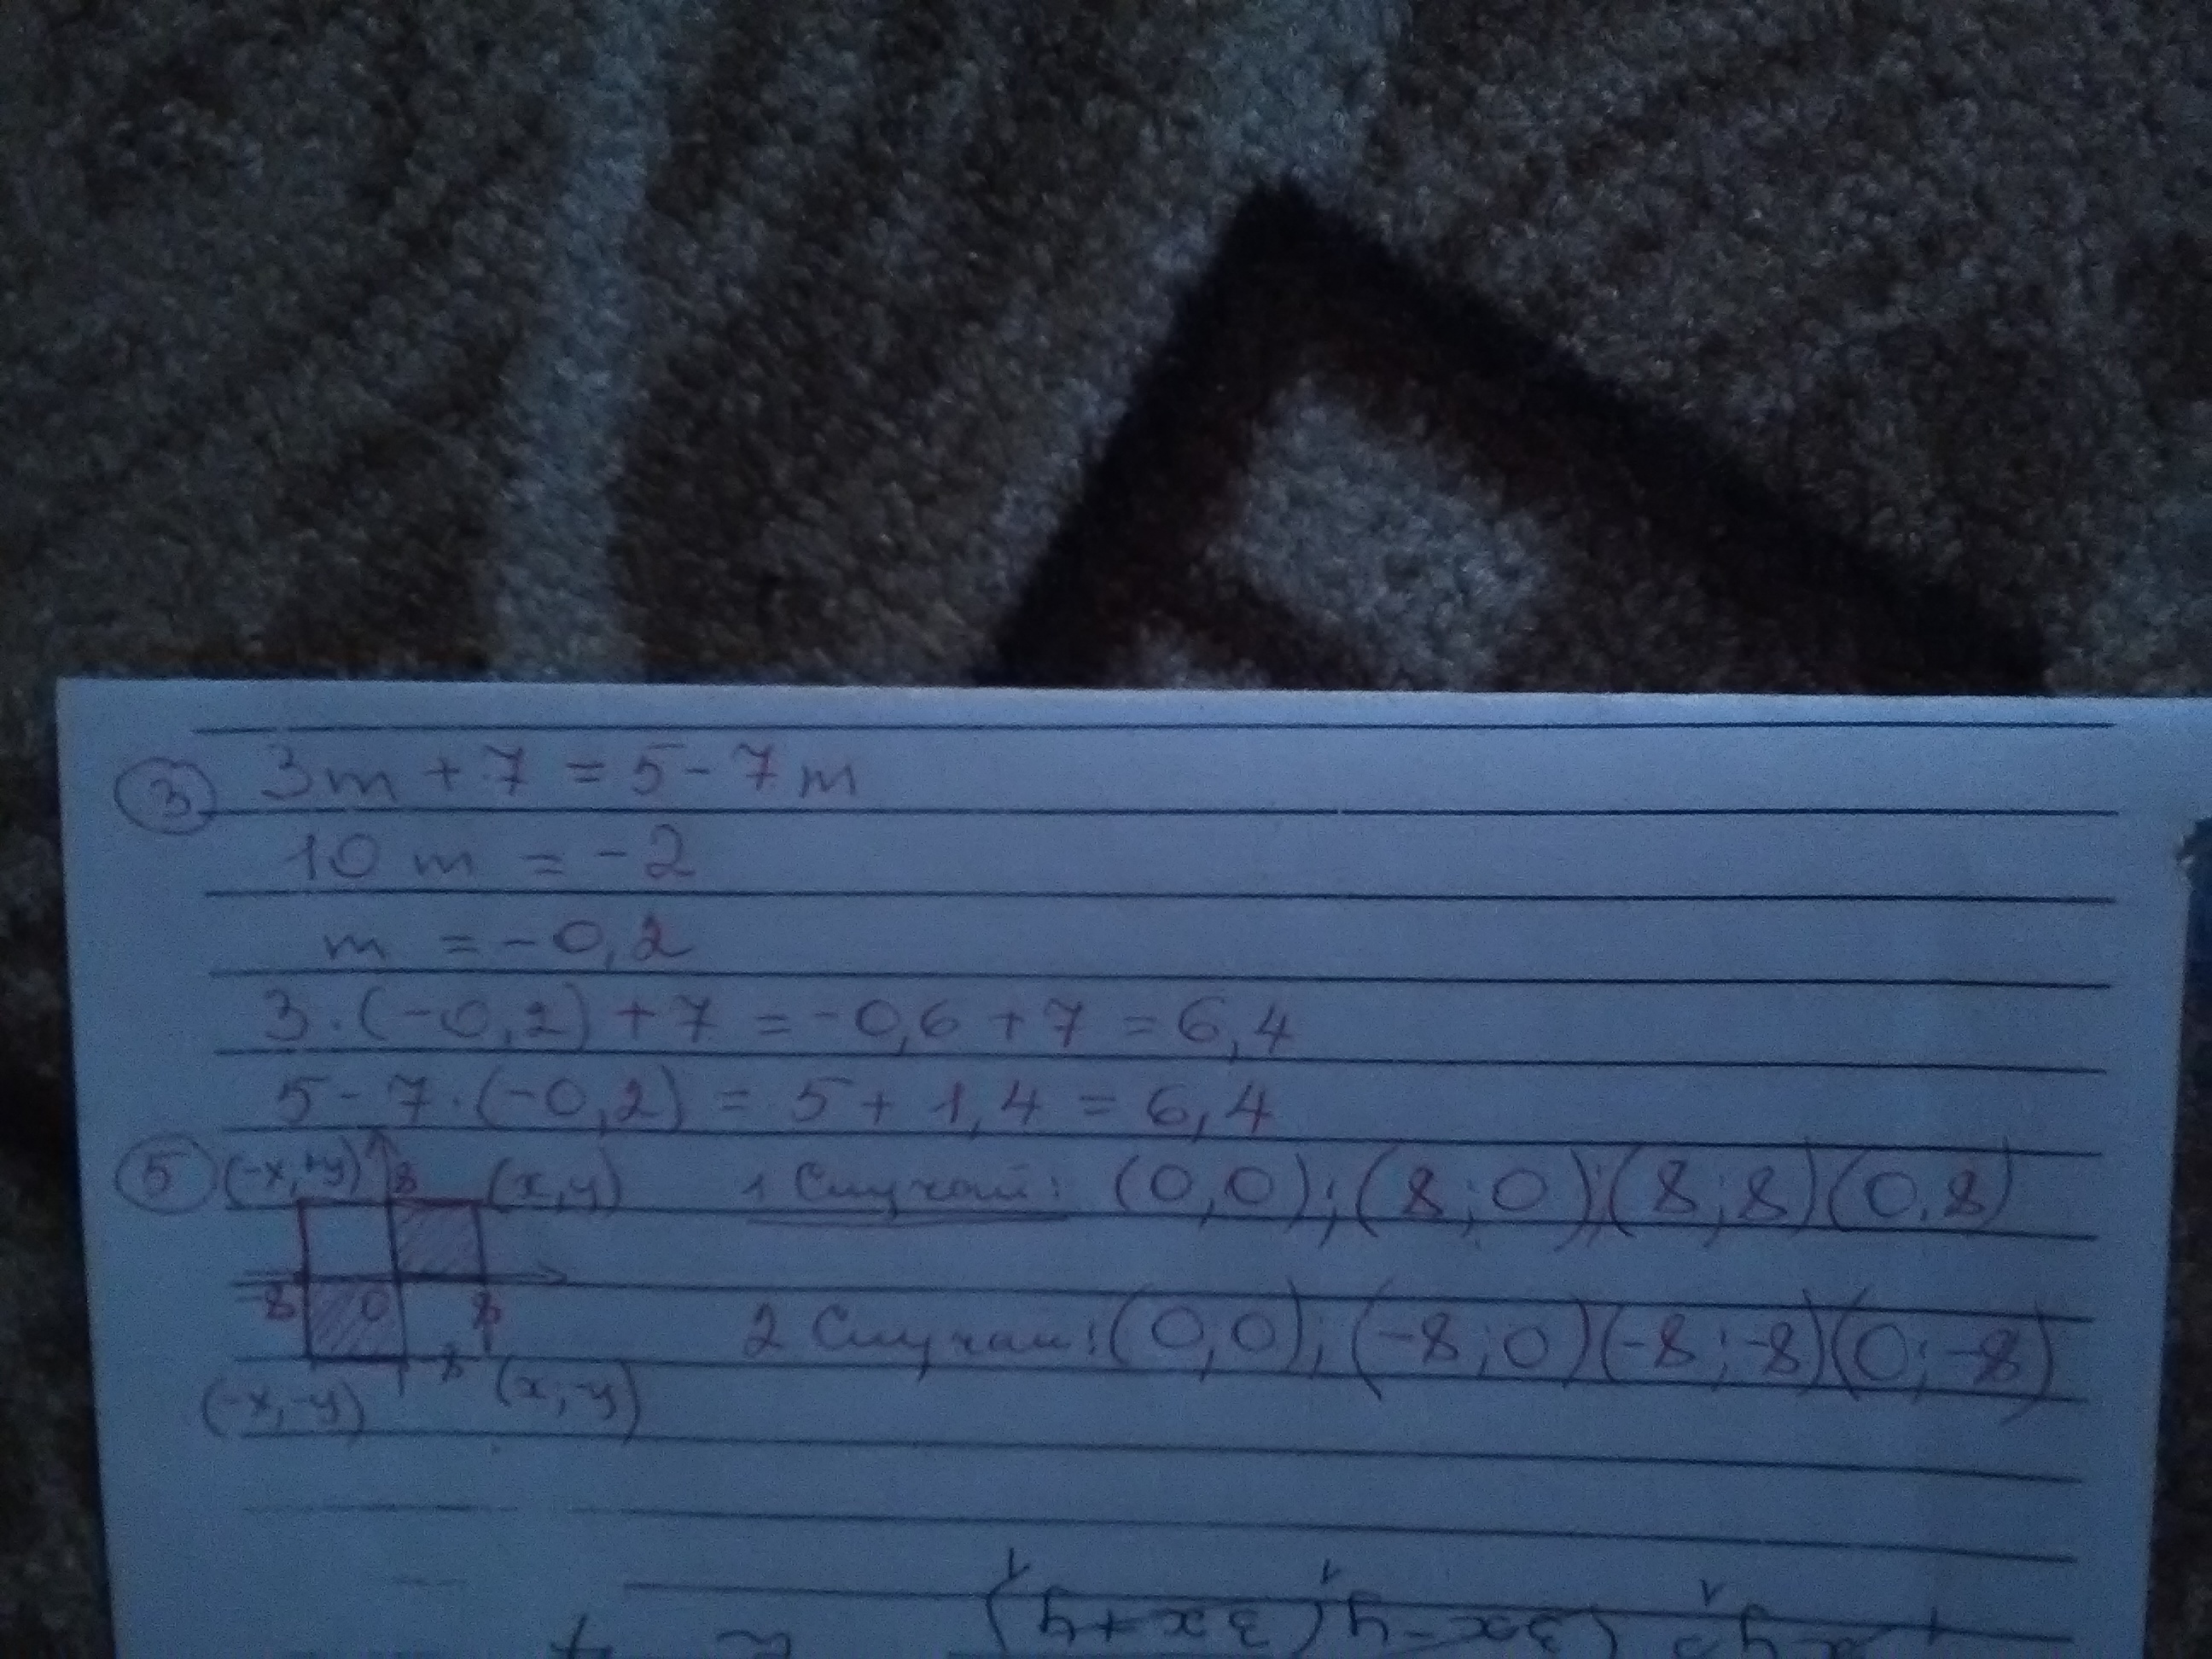 ③ 3m + 7 = 5 - 7m
10 m = -2
m = -0,2
3·(-0,2) + 7 = -0,6 + 7 = 6,4
5 - 7·(-0,2) = 5 + 1,4 = 6,4
⑤ (-x,+y) 8 (x,y) 1 Случай: (0,0);(8;0);(8;8)(0,8)
-8 0 8
2 Случай:(0,0);(-8;0)(-8;-8)(0;-8)
-8
(-x,-y) (x,-y)
(3x-y)(3x+y)